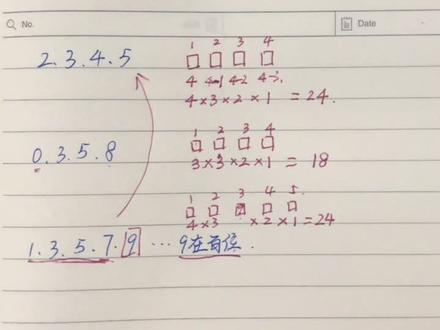 No.
Date
2.3.4.5
1 2 3 4
□ □ □ □
4 4-1 4-2 4-3
4×3×2×1 =24.
0.3.5.8
1 2 3 4
□ □ □ □
3×3×2×1 = 18
1 2 3 4 5.
□ □ □ □ □
4×3 ×2×1=24
1.3.5.7.9 … 9在百位.